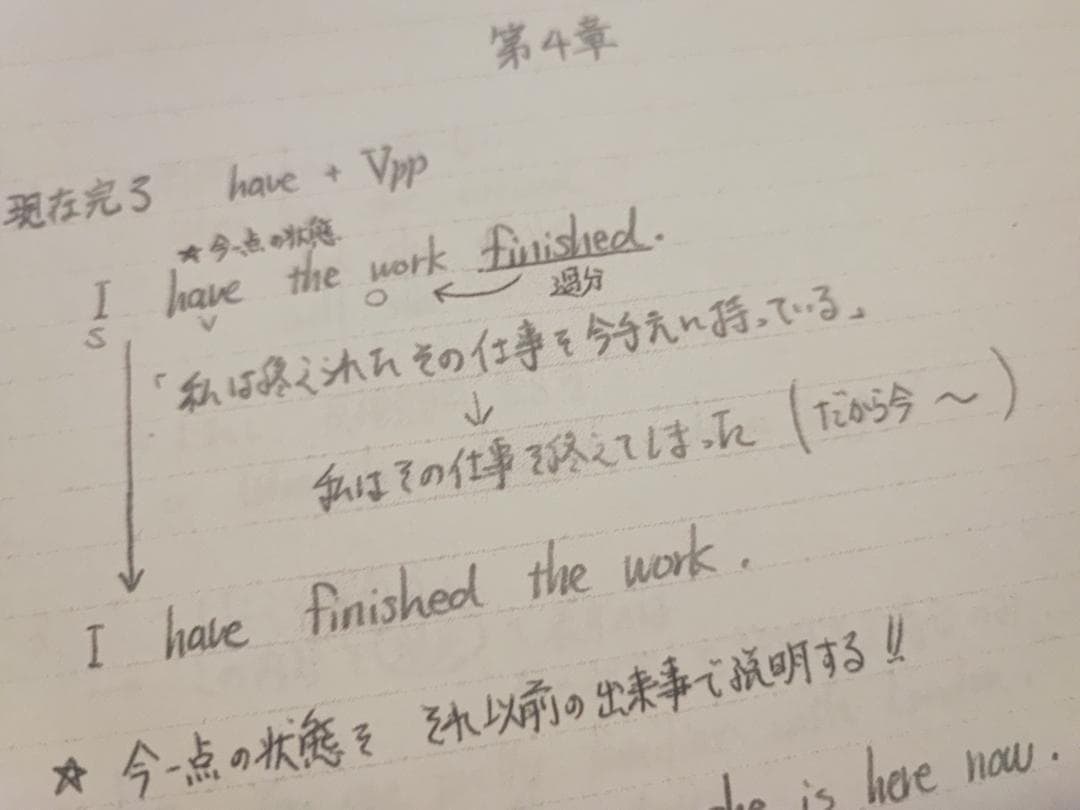 第4章
現在完了 have + Vpp
★今一点の状態
I have the work finished.
S V O 過分
「私は終えられたその仕事を今手元に持っている」
↓
私はその仕事を終えてしまった (だから今 〜)
I have finished the work.
☆ 今一点の状態を それ以前の出来事で説明する!!
she is here now.